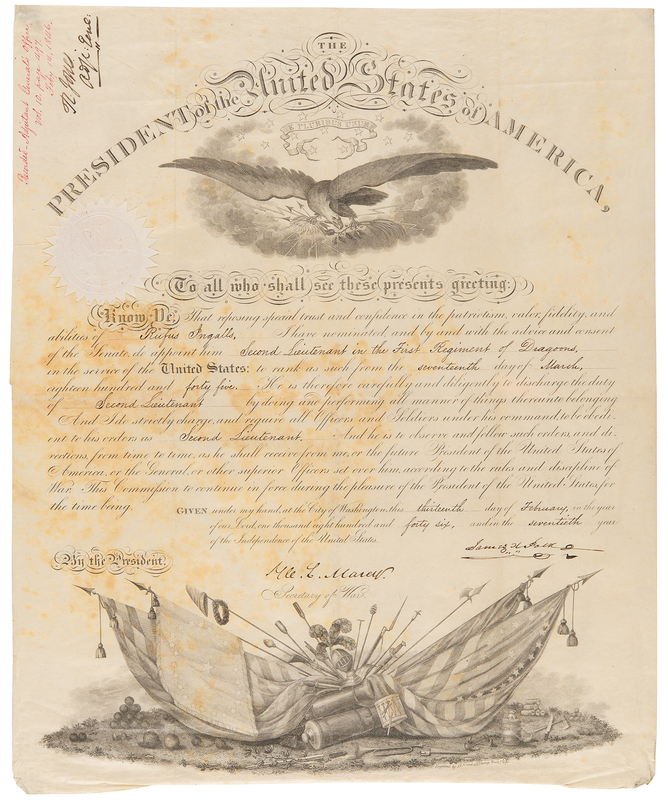 Recorded Adjutant General's Office
Vol. 12, page 297
Feby 14, 1846.
R. Jones
Adjt. Genl.
THE
PRESIDENT of the United States of AMERICA,
E PLURIBUS UNUM
To all who shall see these presents greeting:
Know Ye, That reposing special trust and confidence in the patriotism, valor, fidelity, and
abilities of Rufus Ingalls, I have nominated, and by and with the advice and consent
of the Senate, do appoint him Second Lieutenant in the First Regiment of Dragoons,
in the service of the United States: to rank as such from the seventeenth day of March,
eighteen hundred and forty five. He is therefore carefully and diligently to discharge the duty
of Second Lieutenant by doing and performing all manner of things thereunto belonging
And I do strictly charge, and require all Officers and Soldiers under his command, to be obedi-
ent to his orders as Second Lieutenant. And he is to observe and follow such orders, and di-
rections, from time to time, as he shall receive from me, or the future President of the United States of
America, or the General, or other superior Officers set over him, according to the rules and discipline of
War. This Commission to continue in force during the pleasure of the President of the United States, for
the time being.
GIVEN under my hand, at the City of Washington, this thirteenth day of February, in the year
of our Lord, one thousand eight hundred and forty six, and in the seventieth year
of the Independence of the United States.
James K. Polk
By the President,
W. L. Marcy.
Secretary of War